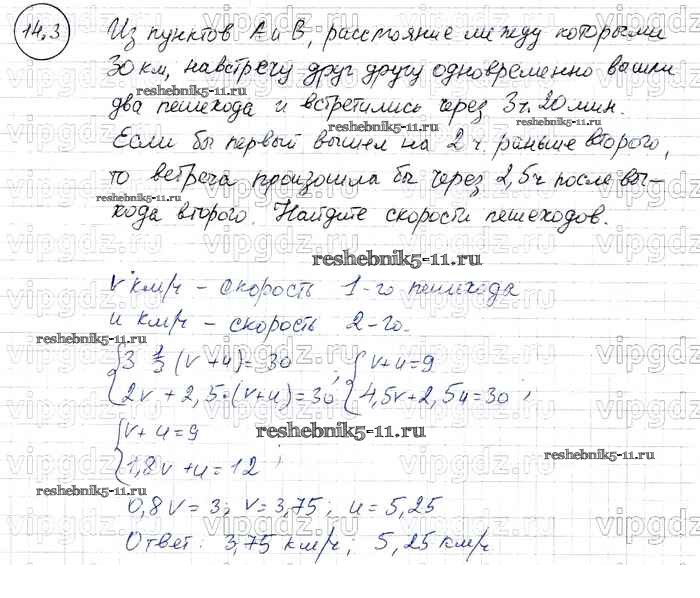 14.3 Из пунктов A и B, расстояние между которыми
30 км, навстречу друг другу одновременно вышли
два пешехода и встретились через 3ч. 20 мин.
Если бы первый вышел на 2 ч. раньше второго,
то встреча произошла бы через 2,5ч после вы-
хода второго. Найдите скорости пешеходов.
v км/ч - скорость 1-го пешехода
u км/ч - скорость 2-го.
{3 1/3 (v+u)=30 ; {v+u=9
{2v+2,5·(v+u)=30 {4,5v+2,5u=30 ;
{v+u=9
{1,8v+u=12 ;
0,8v=3; v=3,75; u=5,25
Ответ: 3,75 км/ч; 5,25 км/ч.